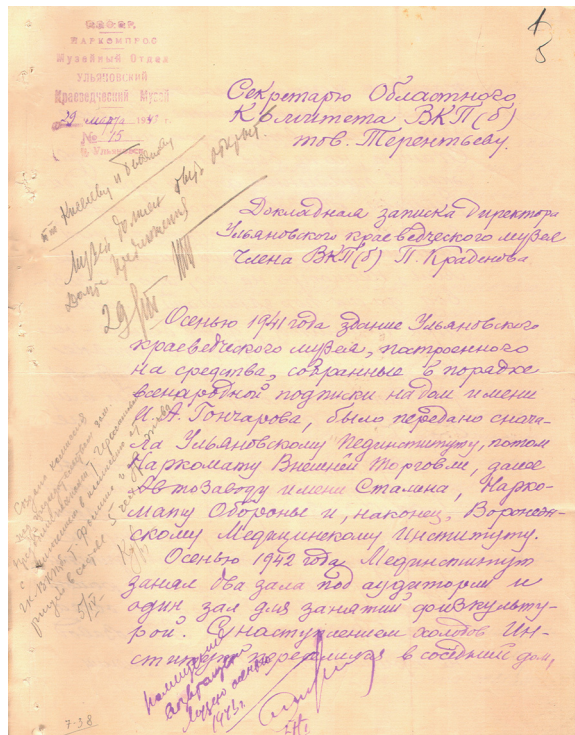 Р.С.Ф.С.Р.
НАРКОМПРОС
Музейный Отдел
УЛЬЯНОВСКИЙ
Краеведческий Музей
29 марта 1943 г.
№ 75
г. Ульяновск
1
5
Секретарю Областного
Комитета ВКП(б)
тов. Терентьеву.
музей должен быть открыт.
Дайте предложения
29/III
Докладная записка директора
Ульяновского краеведческого музея
члена ВКП(б) П. Краденова
Осенью 1941 года здание Ульяновского
краеведческого музея, построенного
на средства, собранные в порядке
всенародной подписки на дом имени
И. А. Гончарова, было передано снача-
ла Ульяновскому Пединституту, потом
Наркомату Внешней Торговли, далее
Автозаводу имени Сталина, Нарко-
мату Обороны и, наконец, Воронеж-
скому Медицинскому Институту.
Осенью 1942 года Мединститут
занял два зала под аудитории и
один зал для занятий физкульту-
рой. С наступлением холодов Ин-
ститут переселился в соседний дом,
5/IV
1943 г.
7-38